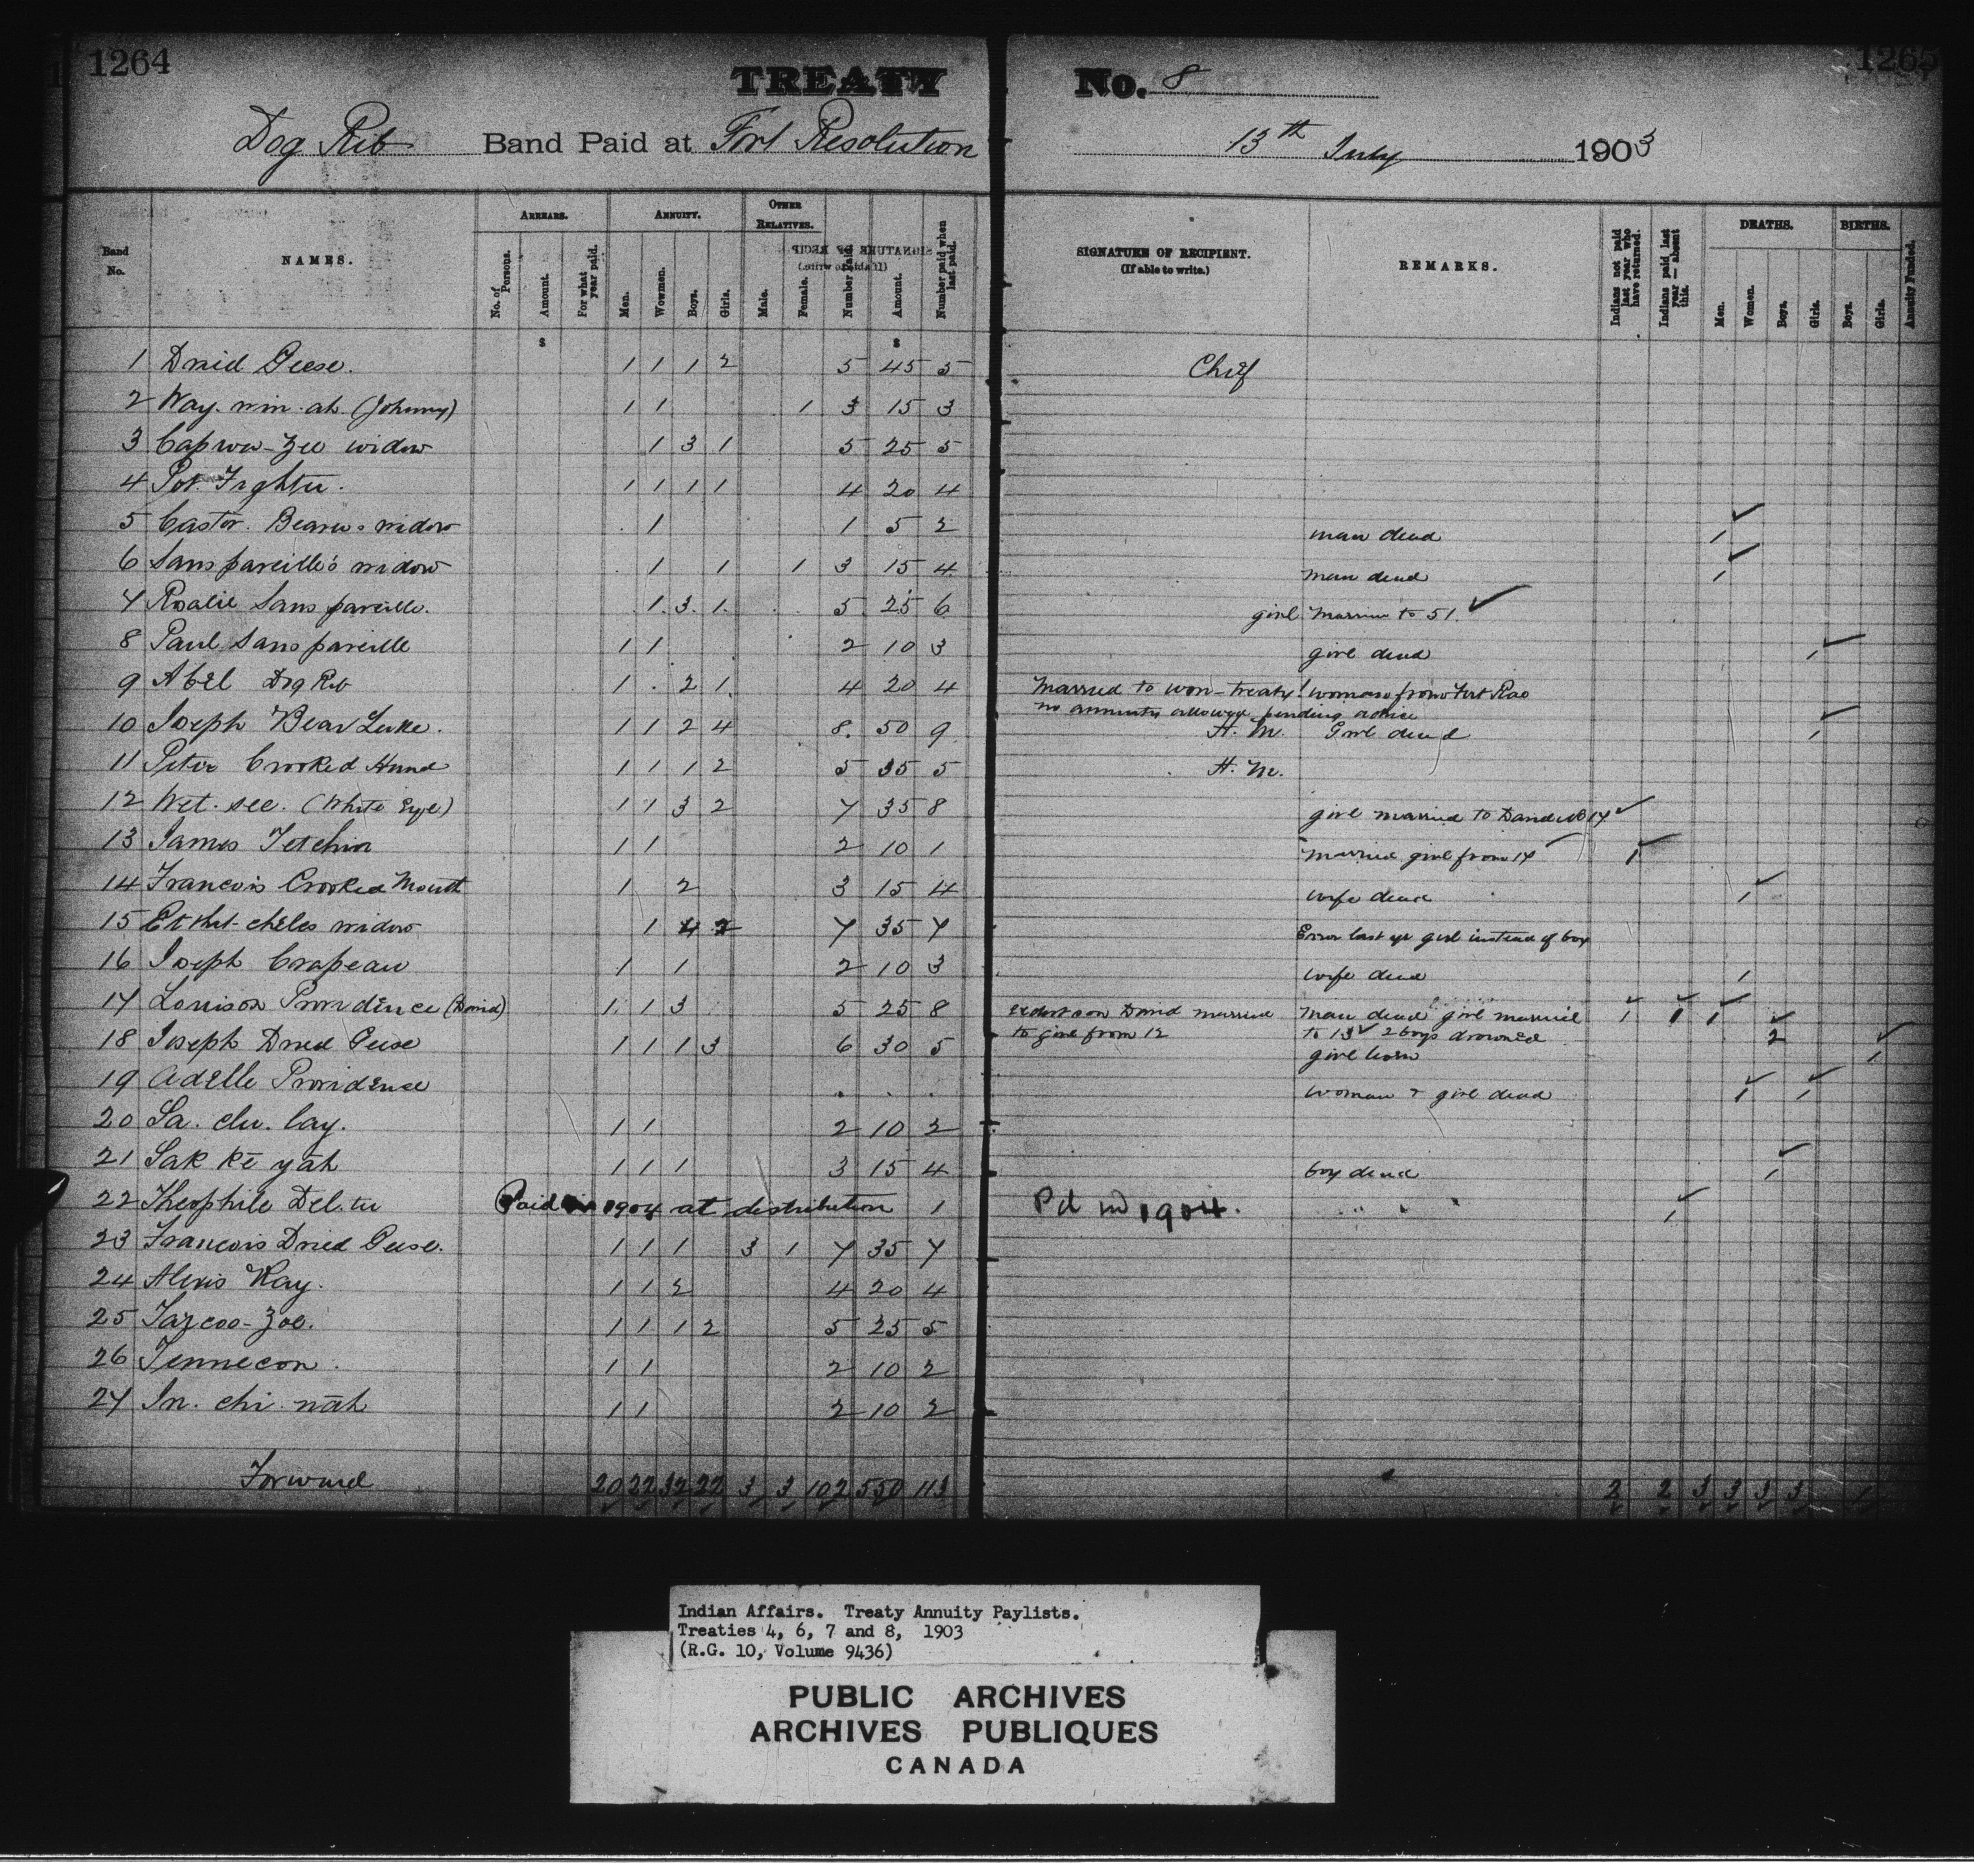 1264
1265
TREATY No. 8
Dog Rib Band Paid at Fort Resolution 13th July 1903
Band No.
NAMES.
ARREARS.
No. of Persons.
Amount.
For what year paid.
ANNUITY.
Men.
Women.
Boys.
Girls.
OTHER RELATIVES.
Male.
Female.
Number paid
Amount.
Number paid when last paid.
SIGNATURE OF RECIPIENT.
(If able to write.)
REMARKS.
Indians not paid last year who have returned.
Indians paid last year — absent this.
DEATHS.
Men.
Women.
Boys.
Girls.
BIRTHS.
Boys.
Girls.
Annuity Funded.
$ $
1 Dried Geese. 1 1 1 2 5 45 5 Chief
2 Way. nin. ah. (Johnny) 1 1 1 3 15 3
3 widow 1 3 1 5 25 5
4 1 1 1 1 4 20 4
5 Castor. widow 1 1 5 2 man dead 1
6 Sanspareille's widow 1 1 1 3 15 4 man dead 1
7 Rosalie Sanspareille. 1 3 1 5 25 6 girl married to 51.
8 Paul Sanspareille 1 1 2 10 3 girl dead 1
9 Abel Dog Rib 1 2 1 4 20 4 Married to non-treaty woman from Fort Rae
no annuity allowed pending advice
10 Joseph Bear Lake. 1 1 2 4 8 50 9 H. M. Girl dead 1
11 Peter Crooked Hand 1 1 1 2 5 35 5 H. M.
12 Wet. see. (White Eye) 1 1 3 2 7 35 8 girl married to David No 17
13 James 1 1 2 10 1 married girl from 17 1
14 Francois Crooked Mouth 1 2 3 15 4 wife dead 1
15 widow 1 4 2 7 35 7 Error last yr girl instead of boy
16 Joseph Crapeau 1 1 2 10 3 wife dead 1
17 Louison Providence (David) 1 1 3 5 25 8 eldest son David married man dead girl married 1 1 1
to girl from 12 to 13 2 boys drowned 2
18 Joseph Dried Geese 1 1 1 3 6 30 5 girl born 1
19 Adelle Providence woman & girl dead 1 1
20 Sa. chu. lay. 1 1 2 10 2
21 Sak kē yah 1 1 1 3 15 4 boy dead 1
22 Theophile Paid in 1904 at distribution 1 Pd in 1904. " " " 1
23 Francois Dried Geese. 1 1 1 3 1 7 35 7
24 Alexis Ray. 1 1 2 4 20 4
25 Tazcoo-Zoe. 1 1 1 2 5 25 5
26 Tennecon. 1 1 2 10 2
27 In. chi. nah 1 1 2 10 2
Forward 20 22 32 22 3 3 102 550 113 2 2 3 3 3 3 1
Indian Affairs. Treaty Annuity Paylists.
Treaties 4, 6, 7 and 8, 1903
(R.G. 10, Volume 9436)
PUBLIC ARCHIVES
ARCHIVES PUBLIQUES
CANADA